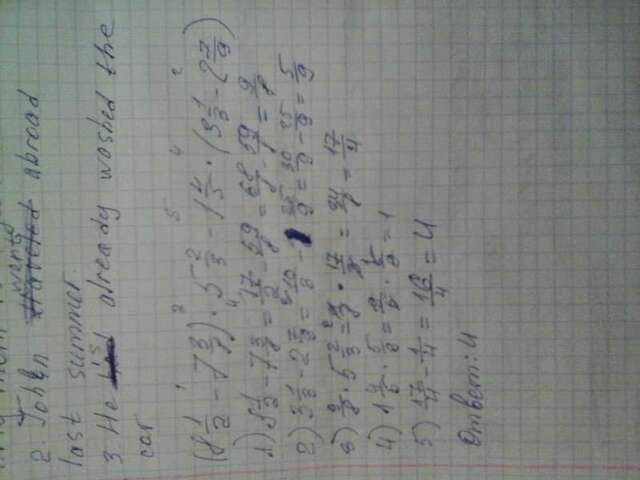 2. John went abroad
last summer.
3. He is already washed the
car
(8 1/2 - 7 3/8) · 5 2/3 - 1 4/5 · (3 1/3 - 2 7/9)
1) 8 1/2 - 7 3/8 = 17/2 - 59/8 = 68/8 - 59/8 = 9/8
2) 3 1/3 - 2 7/9 = 10/3 - 25/9 = 30/9 - 25/9 = 5/9
3) · 5 2/3 = · 17/3 = = 17/4
4) 1 4/5 · = 1
5) 17/4 - 1/4 = 16/4 = 4
Ответ: 4